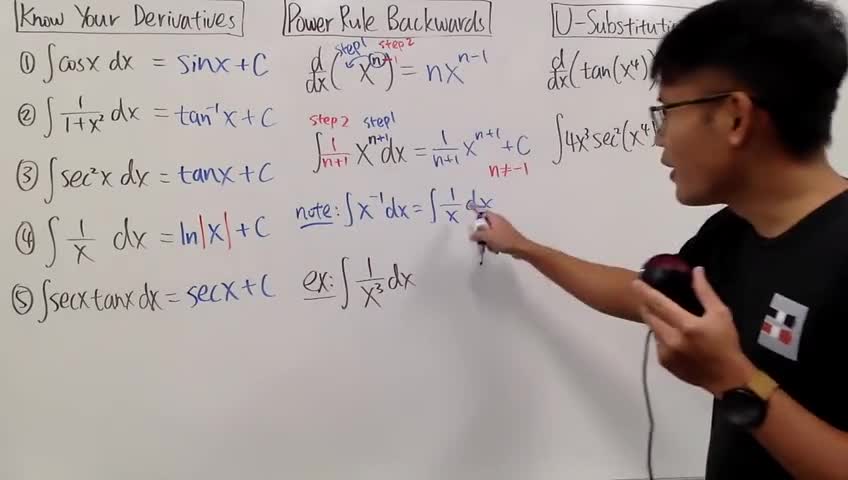 Know Your Derivatives
① ∫cosx dx = sinx + C
② ∫ 1/(1+x²) dx = tan⁻¹x + C
③ ∫sec²x dx = tanx + C
④ ∫ 1/x dx = ln|x| + C
⑤ ∫secxtanx dx = secx + C
Power Rule Backwards
step1 step2
d/dx( xⁿ⁻¹ ) = nxⁿ⁻¹
step 2 step1
∫ 1/(n+1) xⁿ⁺¹ dx = 1/(n+1) xⁿ⁺¹ + C
n≠-1
note: ∫x⁻¹dx = ∫ 1/x dx
ex: ∫ 1/x³ dx
U-Substituti
d/dx(tan(x⁴)
∫4x³sec²(x⁴)